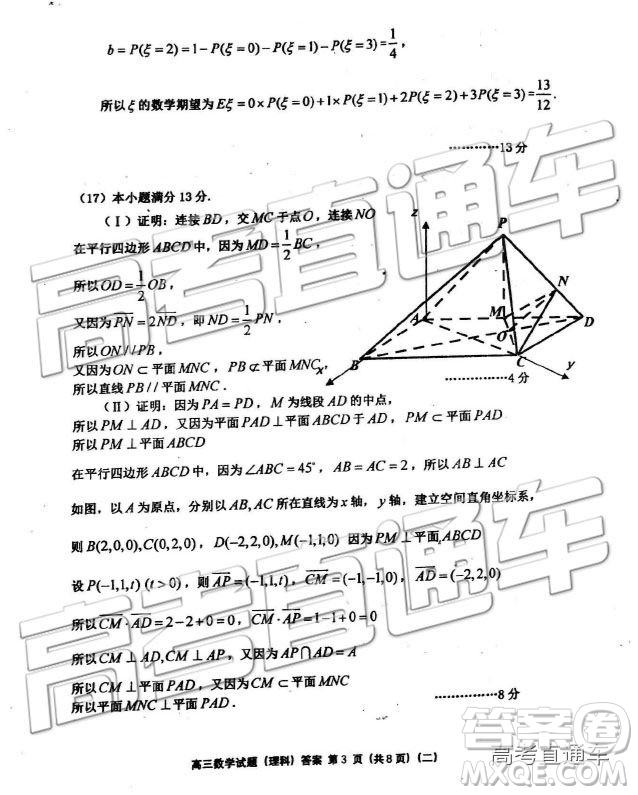 b = P(ξ=2) = 1 − P(ξ=0) − P(ξ=1) − P(ξ=3) = 1/4,
所以 ξ 的数学期望为 Eξ = 0×P(ξ=0)+1×P(ξ=1)+2P(ξ=2)+3P(ξ=3) = 13/12.
··············13 分
(17) 本小题满分 13 分.
(Ⅰ) 证明: 连接 BD, 交 MC 于点 O, 连接 NO
在平行四边形 ABCD 中, 因为 MD = 1/2 BC,
所以 OD = 1/2 OB,
又因为 PN = 2ND, 即 ND = 1/2 PN,
所以 ON // PB,
又因为 ON ⊂ 平面 MNC, PB ⊄ 平面 MNC,
所以直线 PB // 平面 MNC.
··············4 分
z
P
N
A
M
D
O
B
C
x
y
(Ⅱ) 证明: 因为 PA = PD, M 为线段 AD 的中点,
所以 PM ⊥ AD, 又因为平面 PAD ⊥ 平面 ABCD 于 AD, PM ⊂ 平面 PAD
所以 PM ⊥ 平面 ABCD
在平行四边形 ABCD 中, 因为 ∠ABC = 45°, AB = AC = 2, 所以 AB ⊥ AC
如图, 以 A 为原点, 分别以 AB, AC 所在直线为 x 轴, y 轴, 建立空间直角坐标系,
则 B(2,0,0), C(0,2,0), D(−2,2,0), M(−1,1,0) 因为 PM ⊥ 平面 ABCD
设 P(−1,1,t) (t > 0), 则 AP = (−1,1,t), CM = (−1,−1,0), AD = (−2,2,0)
所以 CM · AD = 2 − 2 + 0 = 0, CM · AP = 1 − 1 + 0 = 0
所以 CM ⊥ AD, CM ⊥ AP, 又因为 AP ∩ AD = A
所以 CM ⊥ 平面 PAD, 又因为 CM ⊂ 平面 MNC
所以平面 MNC ⊥ 平面 PAD.
··············8 分
高三数学试题 (理科) 答案 第 3 页 (共 8 页) (二)
高考直通车
高考直通车
答案圈
高考直通车